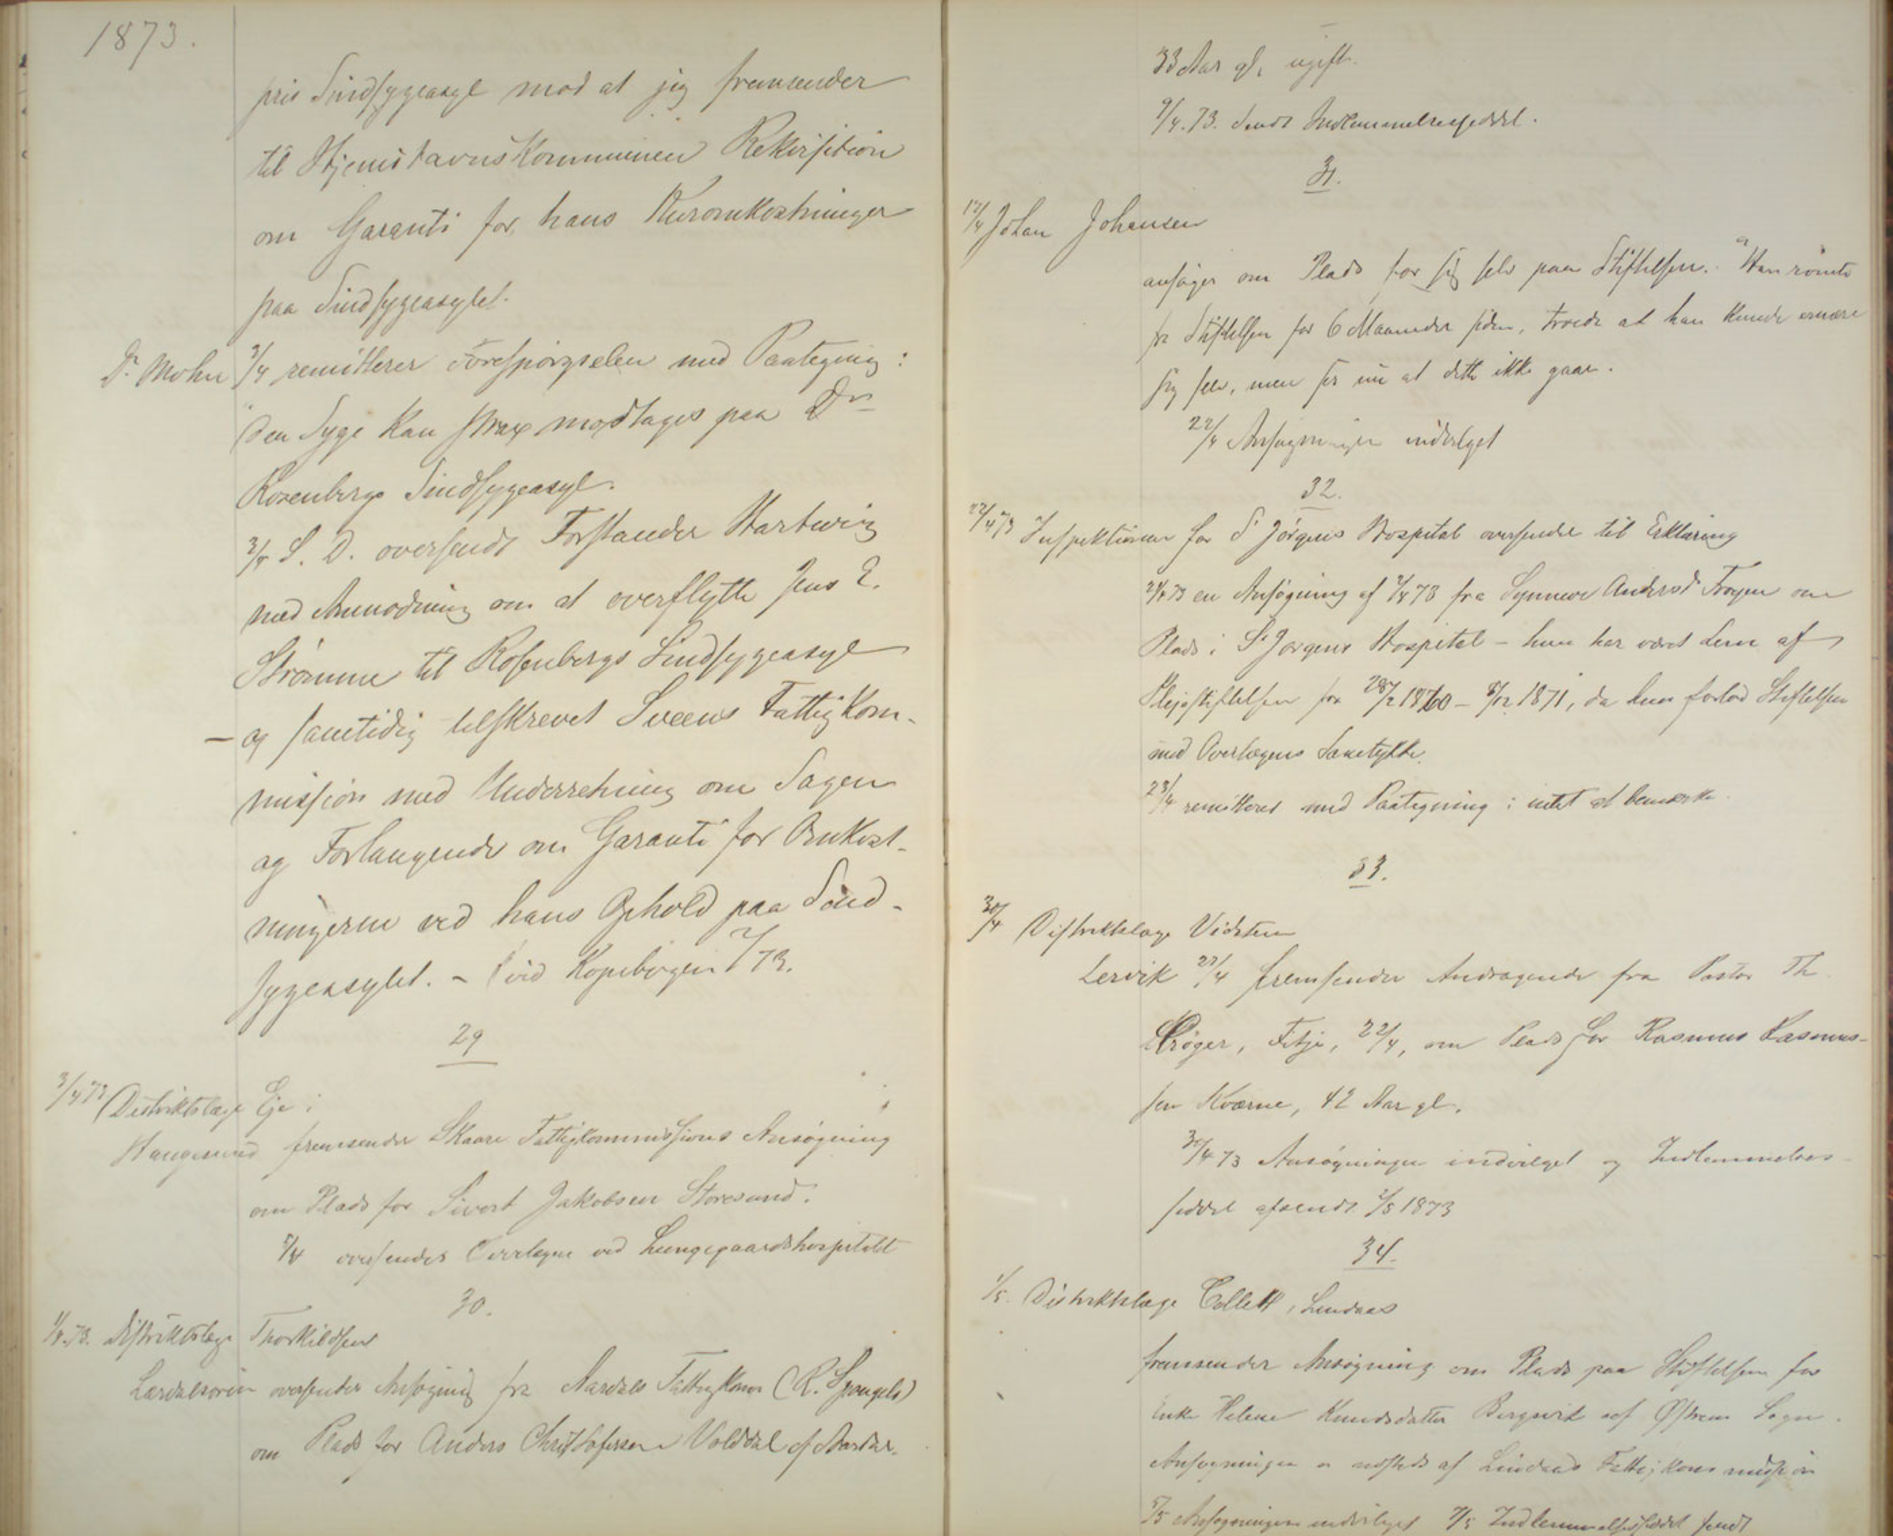 1873.
pris Sindssygeasyl mod at jeg fremsender
til Hjemstavnskommunen Rekvisition
om Garanti for hans Kuromkostninger
paa Sindssygeasylet.
Dr. Mohn 3/4 remitterer Forespørgselen med Paategning:
Den Syge kan strax modtages paa Drs
Rosenbergs Sindssygeasyl.
3/4 S. D. oversendt Forstander Hartwig
med Anmodning om at overflytte Jens E.
Strømme til Rosenbergs Sindssygeasyl
– og samtidig tilskrevet Sveens Fattigkom-
mission med Underretning om Sagen
og Forlangende om Garanti for Omkost-
ningerne ved hans Ophold paa Sind-
sygeasylet. – (vid Kopibogen /73.
29
3/4 73 Distriktslæge Eje i
Haugesund fremsender Skaare Fattigkommissions Ansøgning
om Plads for Sivert Jakobsen Storesund.
/4 oversendes Overlægen ved Lungegaardshospitalet
30.
/4.73. Distriktslæge Thorkildsen
Lærdalsøren oversender Ansøgning fra Aardals Fattigkom (R. Spongels)
om Plads for Anders Christofersen Volddal af Aardal.
33 Aar gl, ugift.
9/4.73. sendt Indlemmelsesseddel.
31.
17/4 Johan Johansen
ansøger om Plads for sig selv paa Stiftelsen. Han rømte
fra Stiftelsen for 6 Maaneder siden, troede at han kunde ernære
sig selv, men ser nu at dette ikke gaar.
22/4 Ansøgningen indvilget
32.
22/4 73 Inspektionen for St Jørgens Hospital oversender til Erklæring
21/4 73 en Ansøgning af /4 73 fra Synneve Andersd Trøyen om
Plads i St Jørgens Hospital – hun har været Lem af
Plejestiftelsen fra 28/2 1860 – 8/12 1871, da hun forlod Stiftelsen
med Overlægens Samtykke.
23/4 remitteret med Paategning: intet at bemærke.
33.
30/4 Distriktslæge Vidsteen
Lervik 27/4 fremsender Andragende fra Pastor Th.
Krøger, Fitje, 22/4, om Plads for Rasmus Rasmus-
sen Kværne, 42 Aar gl.
30/4 73 Ansøgningen indvilget og Indlemmelses-
seddel afsendt 1/5 1873
34.
1/5. Distriktslæge Collett, Lindaas
fremsender Ansøgning om Plads paa Stiftelsen for
Enke Helene Knudsdatter Bergsvik af Østrem Sogn.
Ansøgningen er udstedt af Lindaas Fattigkommission
/5 Ansøgningen indvilget 7/5 Indlemmelsesseddel sendt